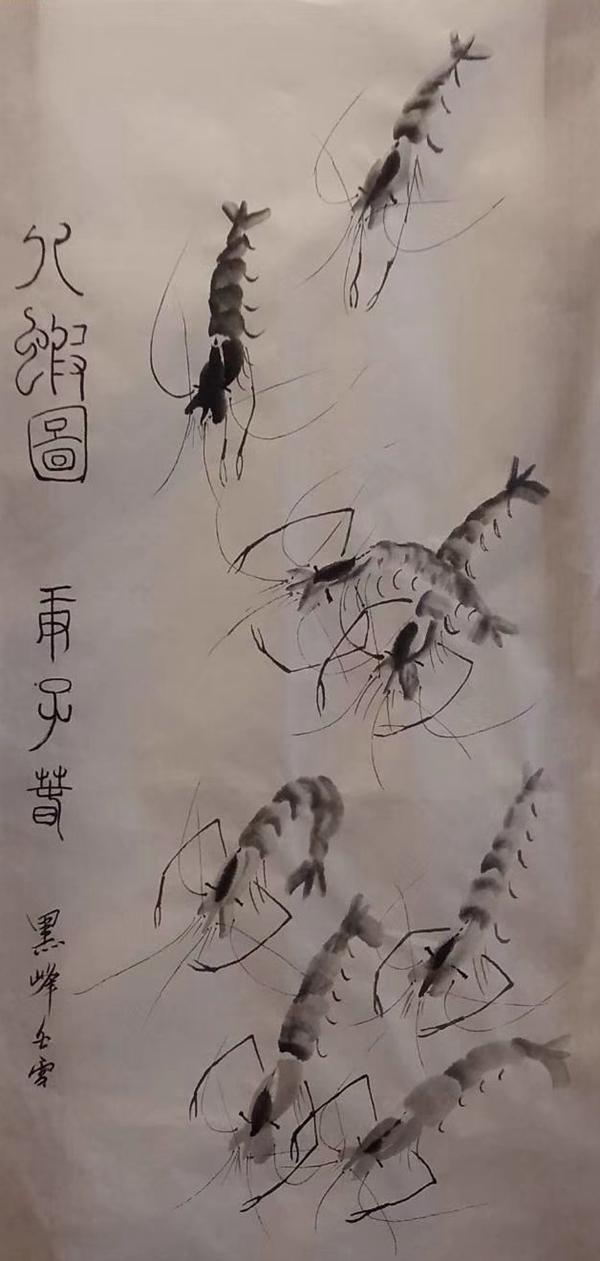 八蝦圖
庚子春
黑峰雪